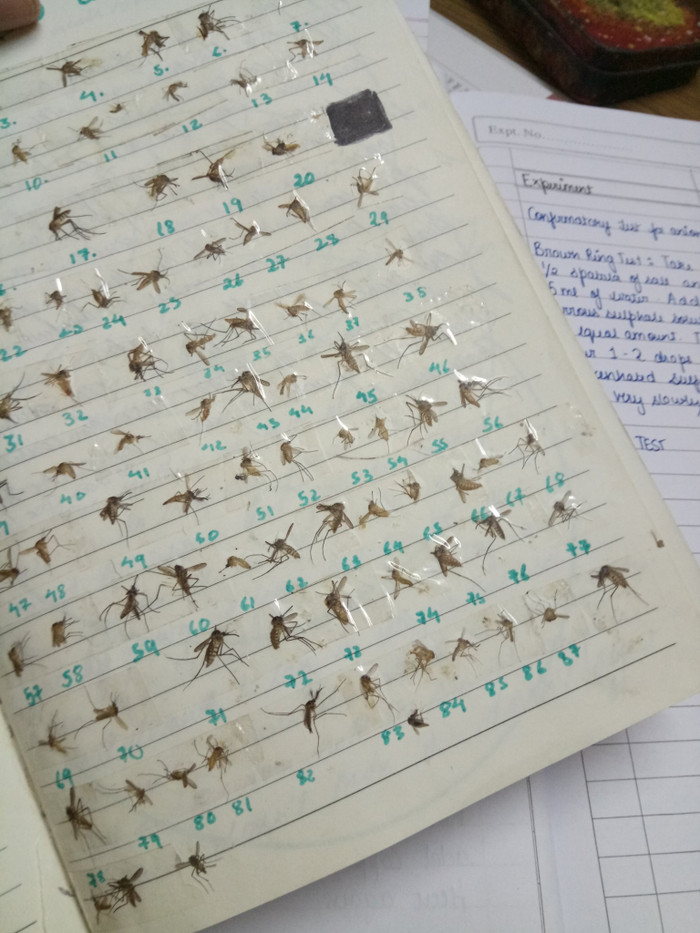 3. 4. 5. 6. 7.
10. 11 12 13 14
17. 18 19 20
22 23 24 25 26 27 28 29
31 32 33 34 35 36 37 35
40 41 42 43 44 45 46
47 48 49 50 51 52 53 54 55 56
57 58 59 60 61 62 63 64 65 66 67 68
69 70 71 72 73 74 75 76 77
78 79 80 81 82 83 84 85 86 87
Expt. No.
Experiment
Confirmatory Test for
Brown Ring Test : Take
1/2 spatula of salt
5 ml of water. Add
sulphate
equal amount.
1-2 drops
very slowly
TEST